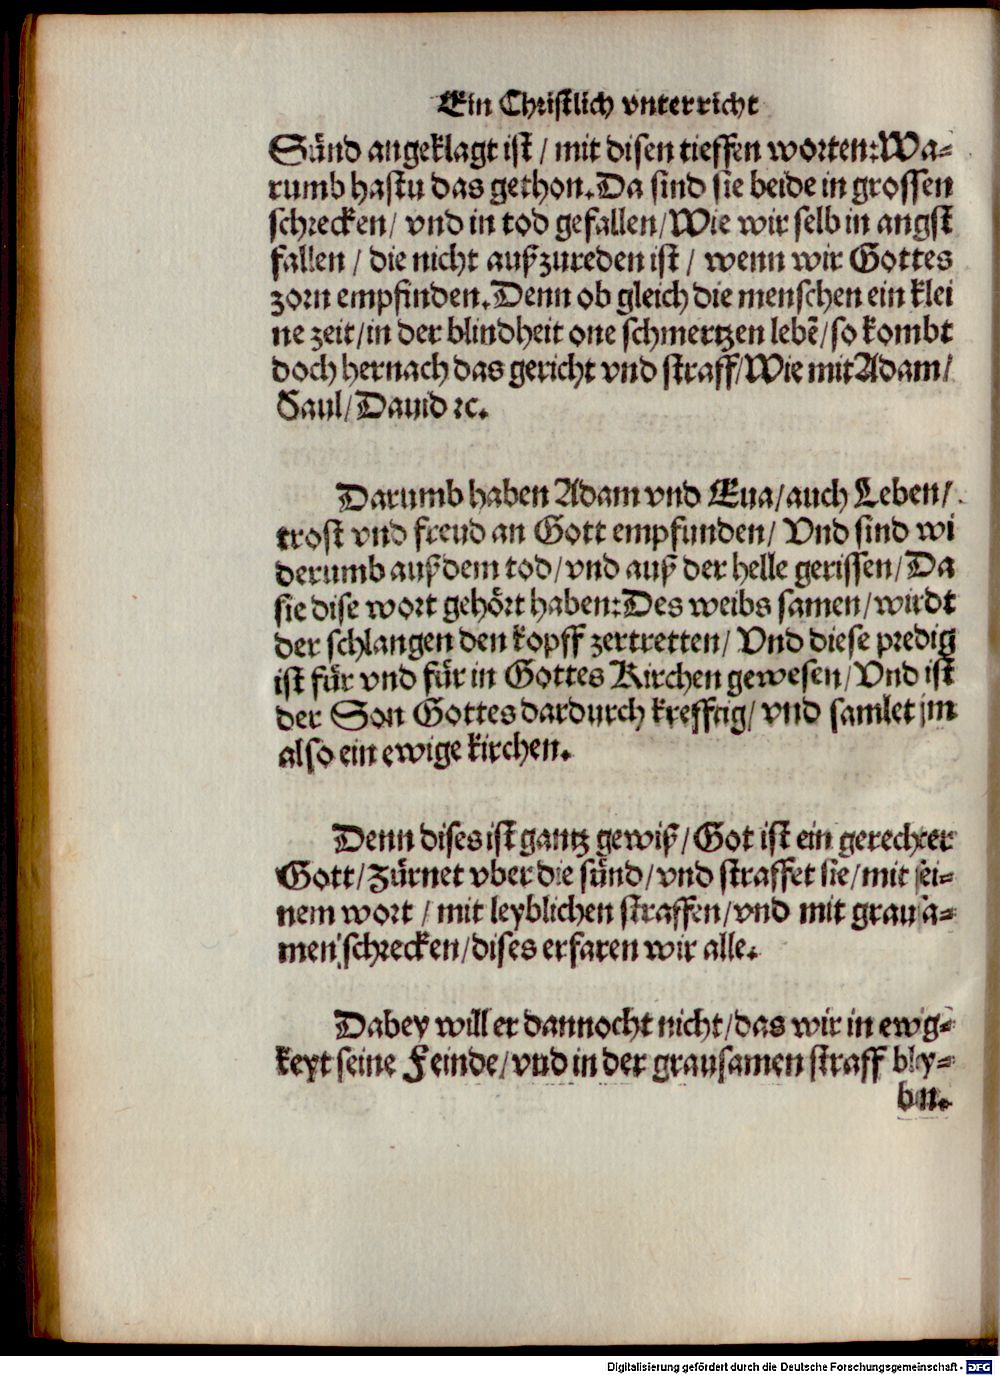 Ein Christlich vnterricht
Sünd angeklagt ist / mit disen tieffen worten: Wa-
rumb hastu das gethon. Da sind sie beide in grossen
schrecken / vnd in tod gefallen / Wie wir selb in angst
fallen / die nicht außzureden ist / wenn wir Gottes
zorn empfinden. Denn ob gleich die menschen ein klei
ne zeit / in der blindheit one schmertzen lebẽ / so kombt
doch hernach das gericht vnd straff / Wie mit Adam /
Saul / Dauid ꝛc.
Darumb haben Adam vnd Eua / auch Leben /
trost vnd freud an Gott empfunden / Vnd sind wi
derumb auß dem tod / vnd auß der helle gerissen / Da
sie dise wort gehört haben: Des weibs samen / wirdt
der schlangen den kopff zertretten / Vnd diese predig
ist für vnd für in Gottes Kirchen gewesen / Vnd ist
der Son Gottes dardurch krefftig / vnd samlet jm
also ein ewige kirchen.
Denn dises ist gantz gewiß / Got ist ein gerechter
Gott / Zürnet vber die sünd / vnd straffet sie / mit sei-
nem wort / mit leyblichen straffen / vnd mit grausa-
men schrecken / dises erfaren wir alle.
Dabey will er dannocht nicht / das wir in ewg-
keyt seine Feinde / vnd in der grausamen straff bley-
bn.
Digitalisierung gefördert durch die Deutsche Forschungsgemeinschaft - DFG